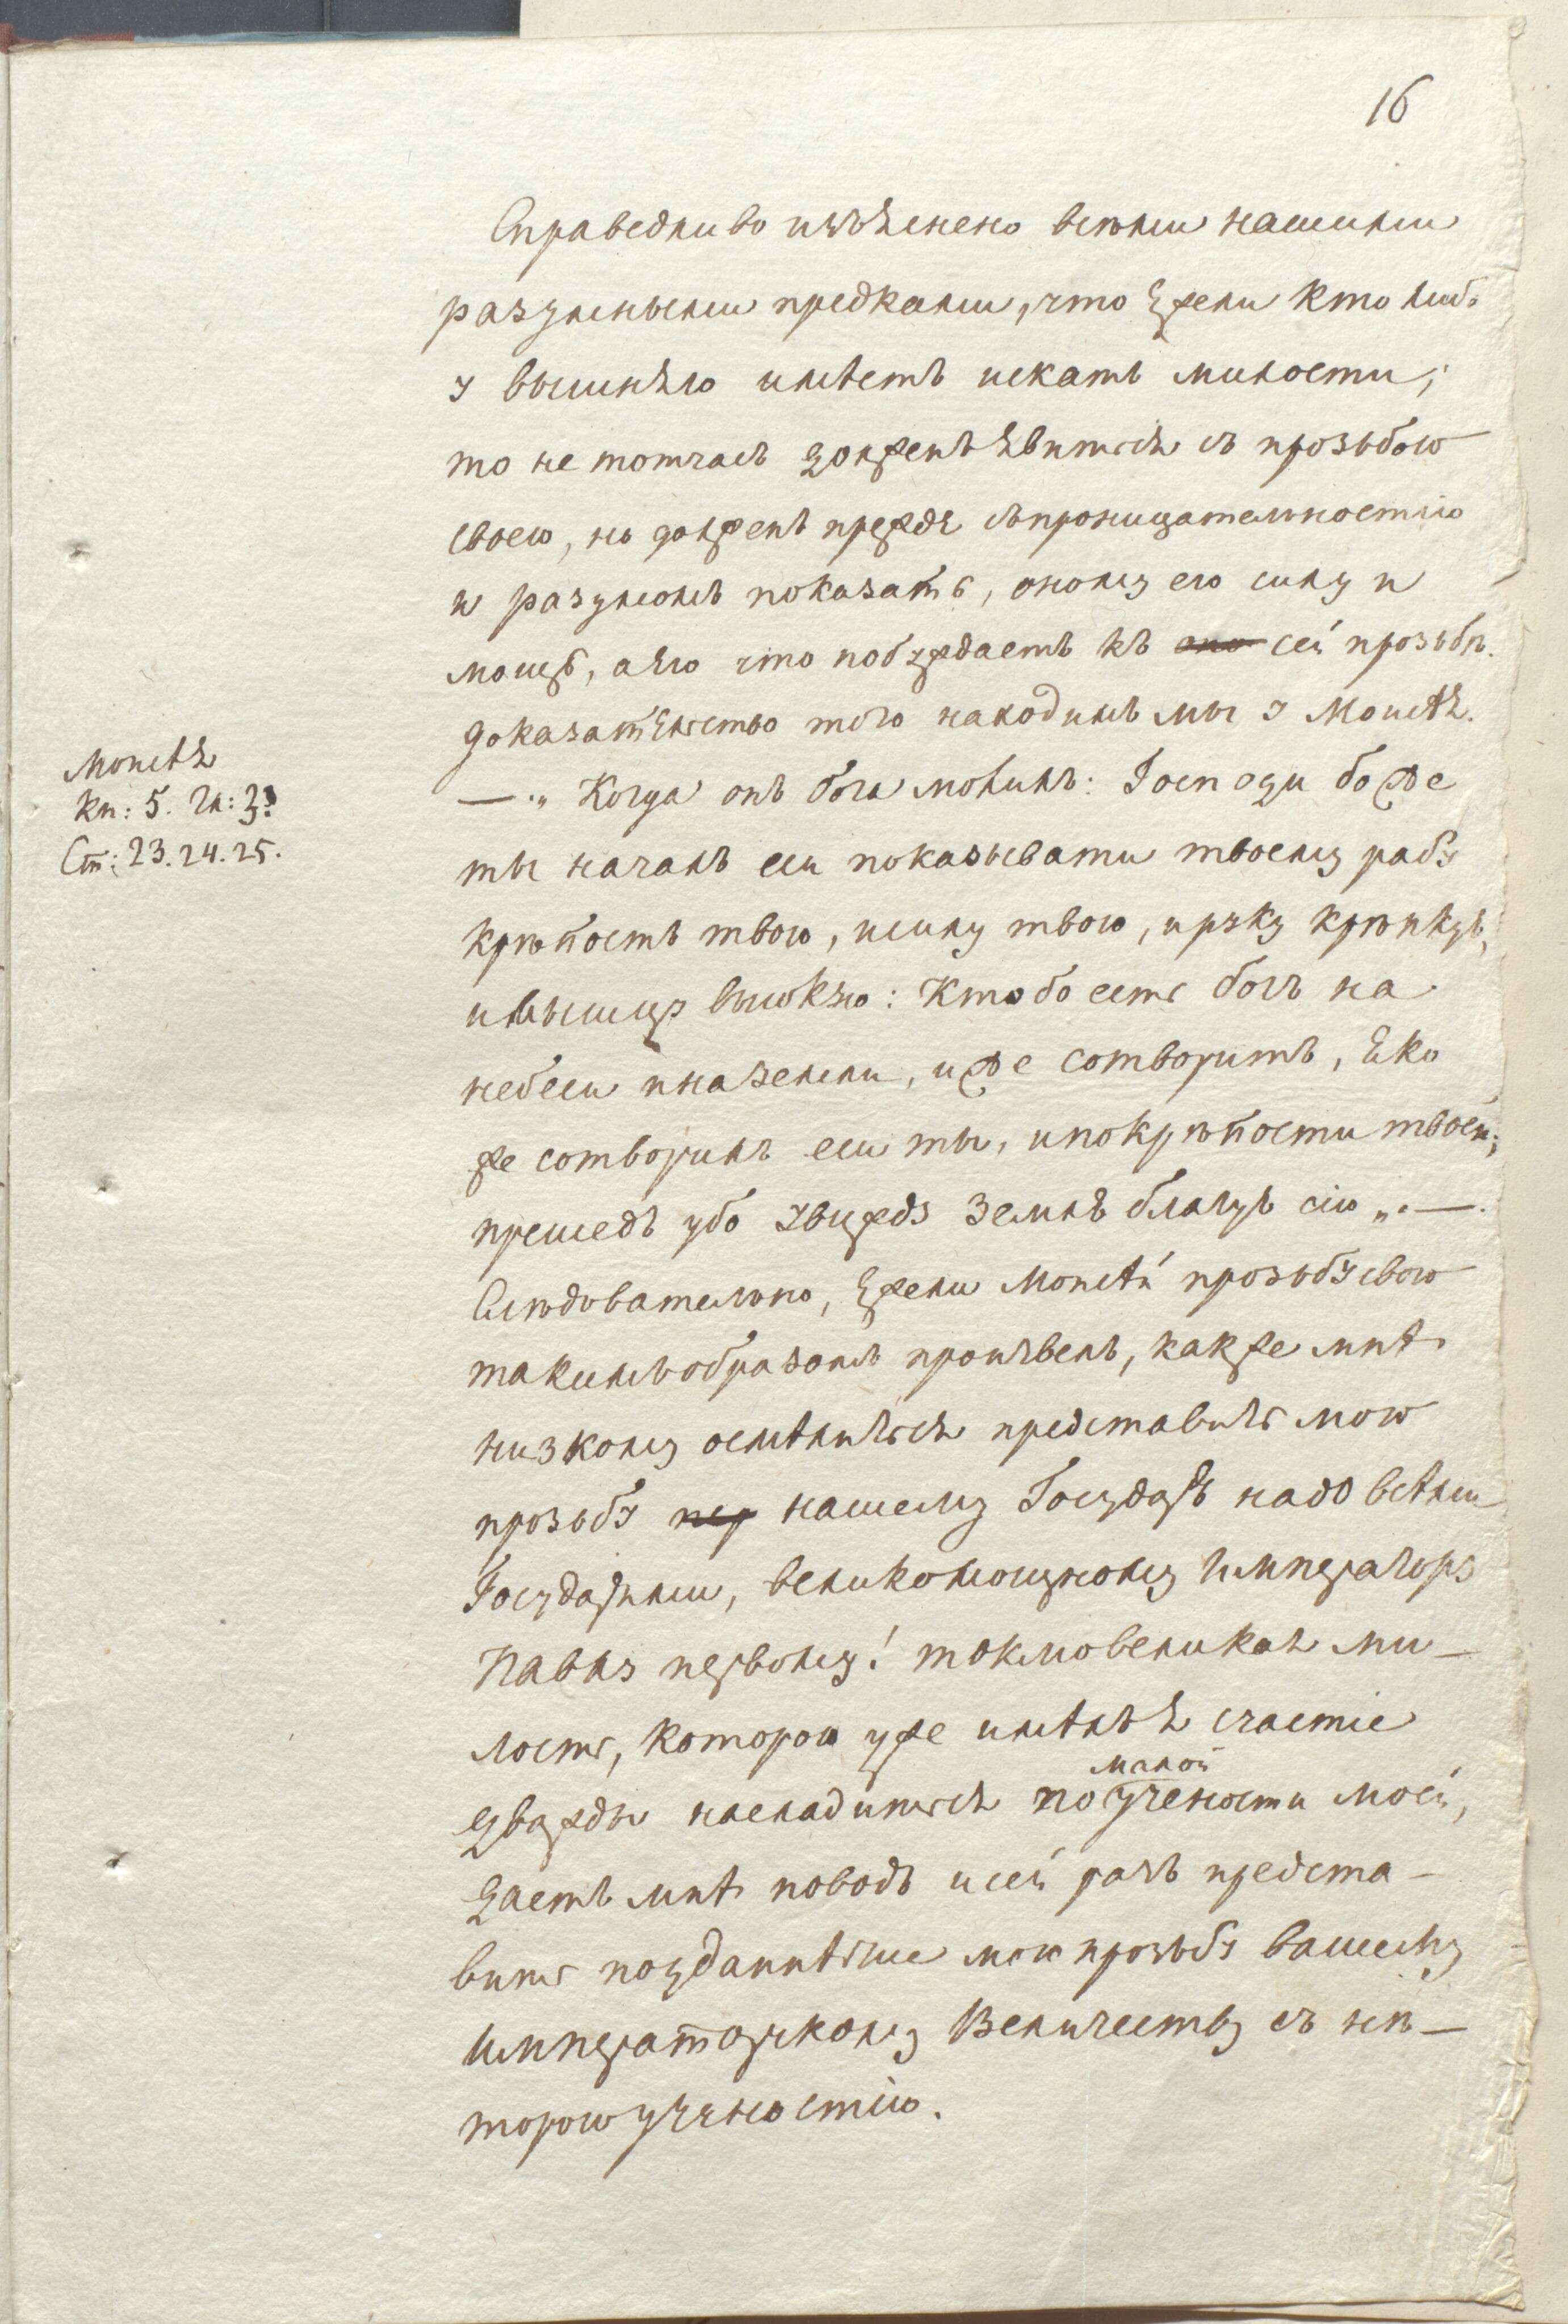 16
Справедливо изъяснено всѣми нашими
разумными предками, что ежели кто либо
у вышняго имѣетъ искать милости;
то не тотчасъ долженъ явится съ прозьбою
своею, но долженъ прежде съпроницательностію
и разумомъ показать, оному его силу и
мощь, а его что побуждаетъ къ оно сей прозьбѣ.
доказательство того находимъ мы у Моисѣя.
Моисѣя
Кн: 5. Гл: 3.
Ст: 23. 24. 25.
—„ Когда онъ бога молилъ: Господи боже
ты началъ еси показывати твоему рабу
крѣпость твою, исилу твою,ируку крѣпкую,
имышцу высокую: Кто бо есть богъ на
небеси иназемли, иже сотворитъ, яко
же сотворилъ еси ты, ипокрѣпости твоей;
прешедъ убо увижду землю благую сію „—.
Слѣдовательно, ежели Моисѣй прозьбу свою
такимъобразомъ произвелъ, какже мнѣ
низкому осмѣлиться представить мою
прозьбу пер нашему Государю надо всѣми
Государями, великомощному Императору
Павлу первому! токмовеликая ми-
лость, которой уже имѣлъ я счастіе
дважды насладиться по малой учености моей,
даетъ мнѣ поводъ исей разъ предста-
вить подданнѣйше мою прозьбу вашему
Императорскому Величеству съ нѣ-
торою ученостію.